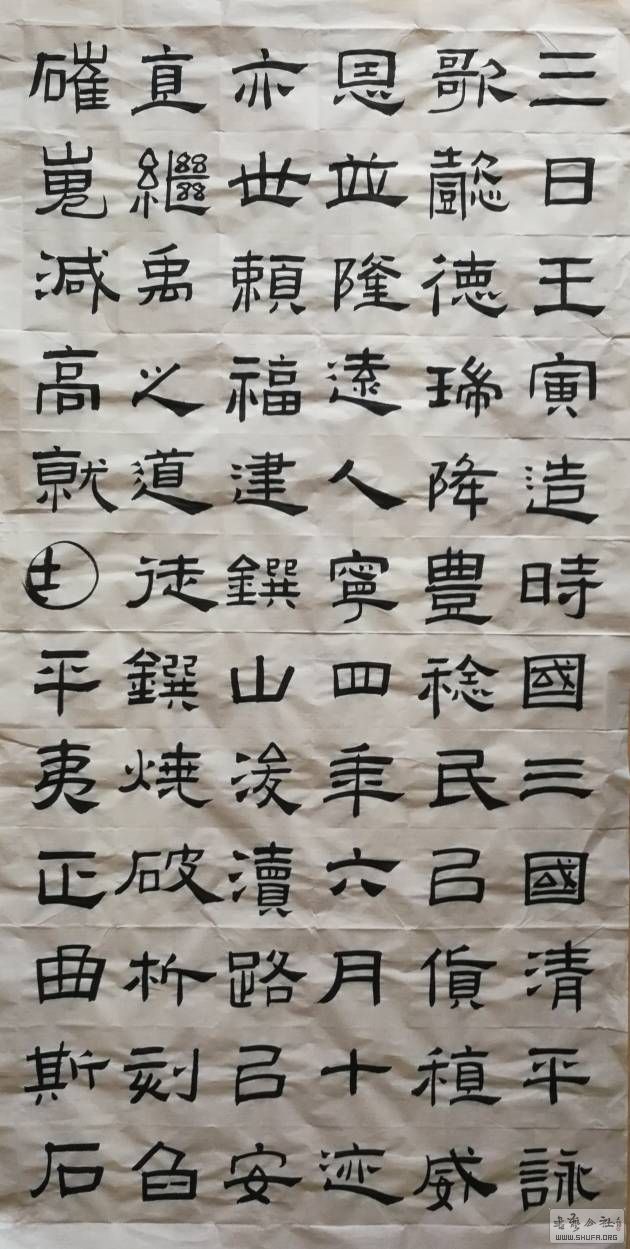 三日王寅造時國三國清平詠
歌懿德瑞降豊稔民㠯貨稙威
恩並隆遠人寧四年六月十迹
亦世賴福建鐉山浚瀆路㠯安
直繼禹之道徒鐉燒破析刻臽
磪嵬減高就平夷正曲斯石
WWW.SHUFA.ORG